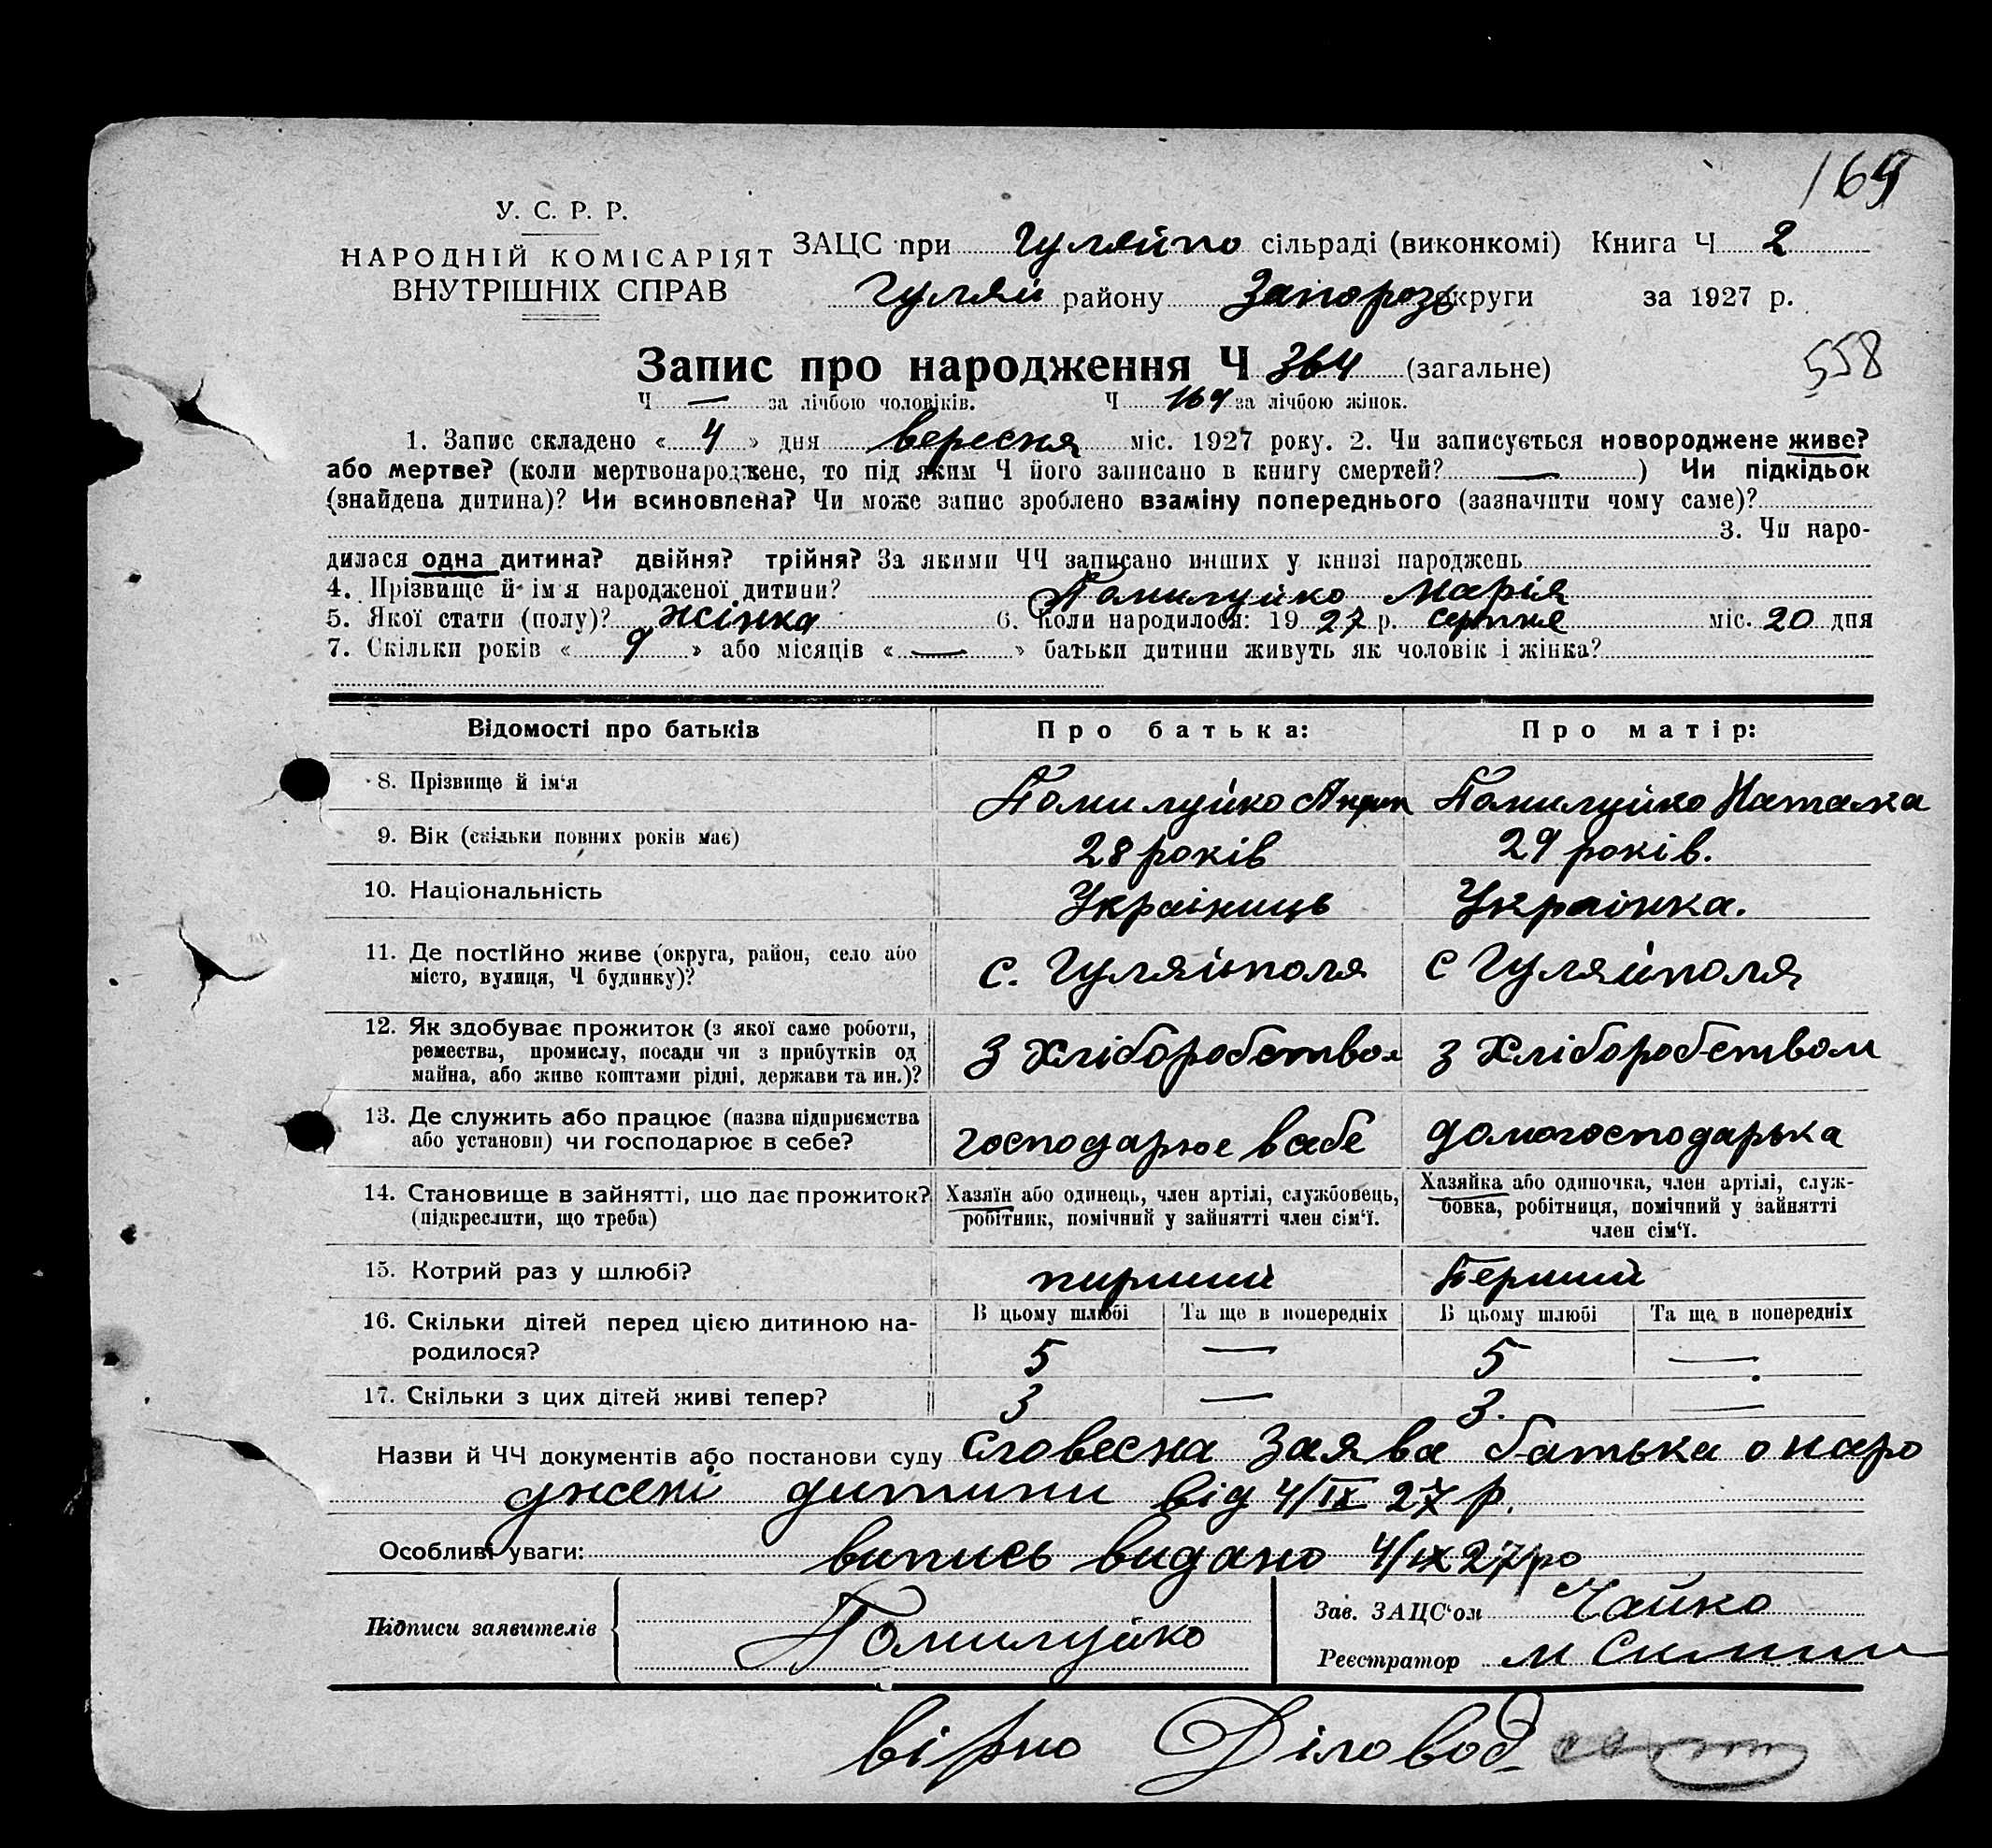 169
У. С. Р. Р.
НАРОДНІЙ КОМІСАРІЯТ
ВНУТРІШНІХ СПРАВ
ЗАЦС при Гуляйпо сільраді (виконкомі) Книга Ч 2
Гуляй району Запорозь округи за 1927 р.
Запис про народження Ч 364 (загальне)
558
Ч — за лічбою чоловіків. Ч 169 за лічбою жінок.
1. Запис складено « 4 » дня вересня міс. 1927 року. 2. Чи записується новороджене живе?
або мертве? (коли мертвонароджене, то під яким Ч його записано в книгу смертей? — ) Чи підкідьок
(знайдена дитина)? Чи всиновлена? Чи може запис зроблено взаміну попереднього (зазначити чому саме)?
3. Чи наро-
дилася одна дитина? двійня? трійня? За якими ЧЧ записано инших у книзі народжень
4. Прізвище й ім'я народженої дитини? Помилуйко Марія
5. Якої стати (полу)? жінка 6. Коли народилося: 1927 р. серпня міс. 20 дня
7. Скільки років « 9 » або місяців « — » батьки дитини живуть як чоловік і жінка?
Відомості про батьків Про батька: Про матір:
8. Прізвище й ім'я Помилуйко Помилуйко Наталка
9. Вік (скільки повних років має) 28 років 29 років.
10. Національність Україниць Українка.
11. Де постійно живе (округа, район, село або с. Гуляйполя с Гуляйполя
місто, вулиця, Ч будинку)?
12. Як здобуває прожиток (з якої саме роботи,
ремества, промислу, посади чи з прибутків од з хліборобством з хліборобством
майна, або живе коштами рідні, держави та ин.)?
13. Де служить або працює (назва підприємства господарює всебе домогосподарька
або установи) чи господарює в себе?
14. Становище в зайнятті, що дає прожиток? Хазяїн або одинець, член артілі, службовець, Хазяйка або одиночка, член артілі, служ-
(підкреслити, що треба) робітник, помічний у зайнятті член сім'ї. бовка, робітниця, помічний у зайнятті
член сім'ї.
15. Котрий раз у шлюбі? пирший Перший
16. Скільки дітей перед цією дитиною на- В цьому шлюбі Та ще в попередніх В цьому шлюбі Та ще в попередніх
родилося? 5 — 5 —
17. Скільки з цих дітей живі тепер? 3 — 3. —
Назви й ЧЧ документів або постанови суду Словесна заява батька о наро
джені дитини від 4/IX 27 р.
Особливі уваги: випись видано 4/IX 27 ро
Підписи заявителів Помилуйко Зав. ЗАЦС'ом Чайко
Реєстратор М
вірно Діловод